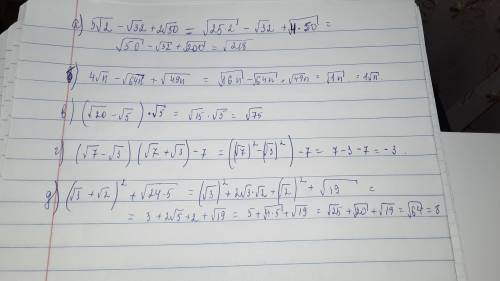 а) 5√2 − √32 + 2√50 = √25·2 − √32 + √4·50 =
√50 − √32 + √200 = √218
б) 4√n − √64n + √49n = √16n − √64n + √49n = √1n = 1√n.
в) (√20 − √5) · √5 = √15 · √5 = √75
г) (√7 − √3) (√7 + √3) − 7 = ((√7)² − (√3)²) − 7 = 7 − 3 − 7 = − 3.
д) (√3 + √2)² + √24·5 = (√3)² + 2√3·√2 + (√2)² + √19 =
= 3 + 2√5 + 2 + √19 = 5 + √4·5 + √19 = √25 + √20 + √19 = √64 = 8